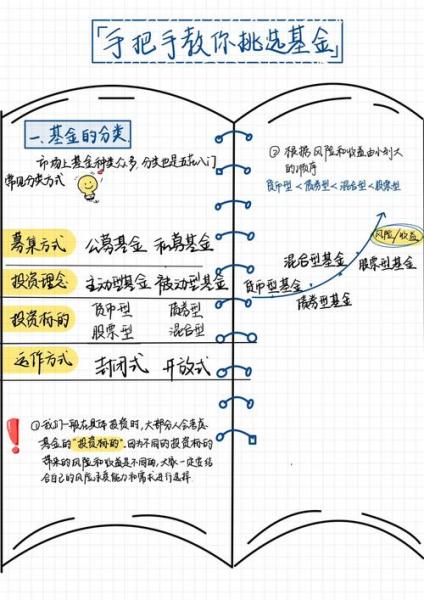 「手把手教你挑选基金」
一、基金的分类
市场上基金种类众多,分类也是五花八门
常见分类方式
募集方式 公募基金 私募基金
投资理念 主动型基金 被动型基金
投资标的 货币型 债券型
股票型 混合型
运作方式 封闭式 开放式
①我们一般在具体投资时,大部分人会考虑
基金的"投资标的",因为不同的投资标的
带来的风险和收益是不同的,大家一定要结
合自己的风险承受能力和需求进行选择
②根据风险和收益由小到大
的顺序
货币型<债券型<混合型<股票型
风险/收益
混合型基金 股票型基金
货币型基金
债券型基金